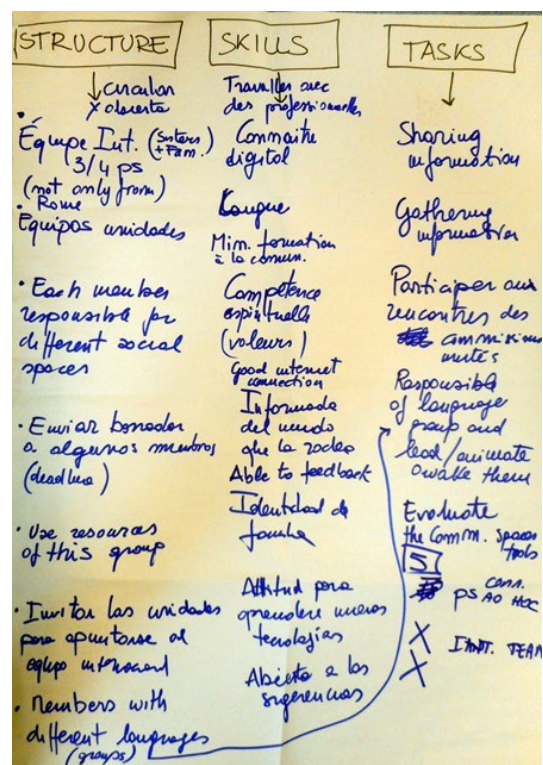 STRUCTURE
circular
x abierta
Équipe Int. (Sisters
+ Fam.)
3/4 ps
(not only from)
Rome
Equipos unidades
• Each member
responsible for
different social
spaces
• Enviar borrador
a algunos miembros
(deadline)
• Use resources
of this group
• Invitar las unidades
para apuntarse al
equipo internacional
• Members with
different languages
(groups)
SKILLS
Travailler avec
des professionnelles
Connaitre
digital
Langue
Min. formation
à la commun.
Compétence
spirituelle
(valeurs)
Good internet
connection
Informada
del mundo
que la rodea
Able to feedback
Identidad de
familia
Attitud para
aprendere nuevas
tecnologías
Abierta a las
sugerencias
TASKS
Sharing
information
Gathering
information
Participer aux
rencontres des
commissions
mixtes
Responsible
of language
group and
lead/animate
awake them
Evaluate
the Comm. spaces
tools
5
ps comm.
AD HOC
X
X
INT. TEAM